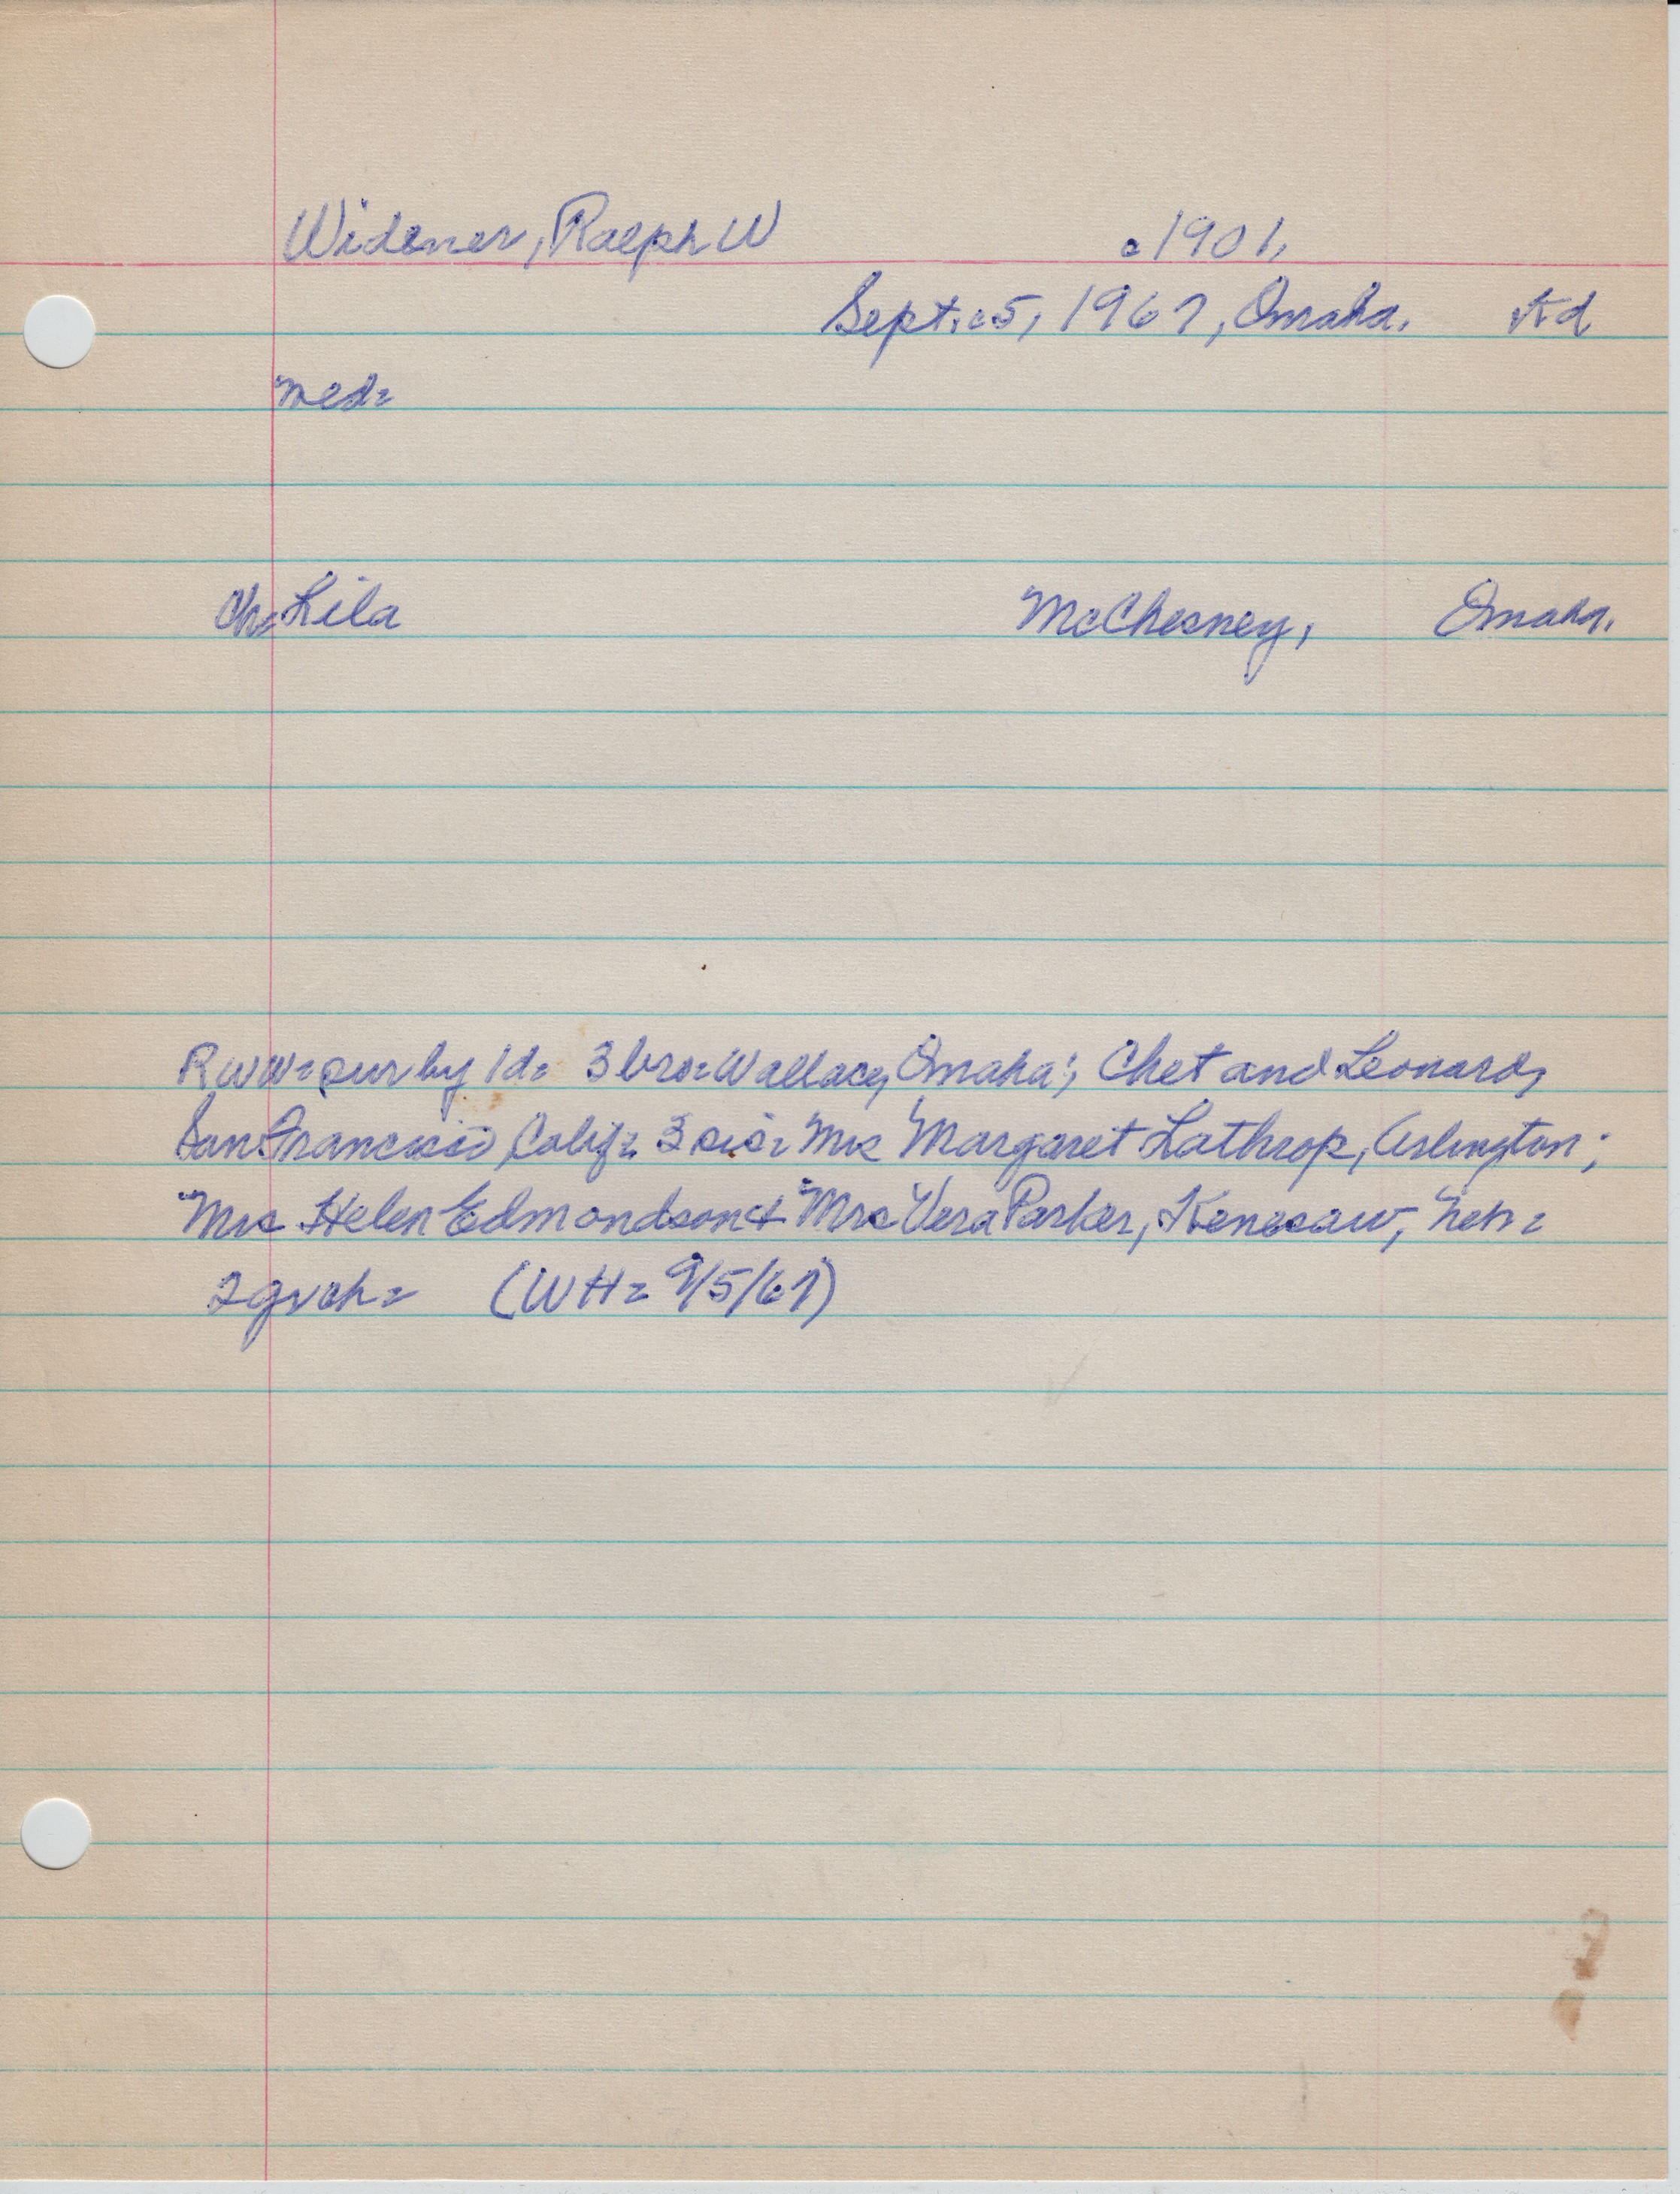 Widener, Ralph W c1901,
Sept. c5, 1967, Omaha.
med=
Ch= Lila McChesney, Omaha.
RWW= sur by 1d= 3 bro= Wallace, Omaha; Chet and Leonard,
San Francisco Calif= 3 sis= Mrs Margaret Lathrop, Arlington;
Mrs Helen Edmondson & Mrs Vera Parker, Kenesaw, Neb=
2 grch= (WH= 9/5/67)